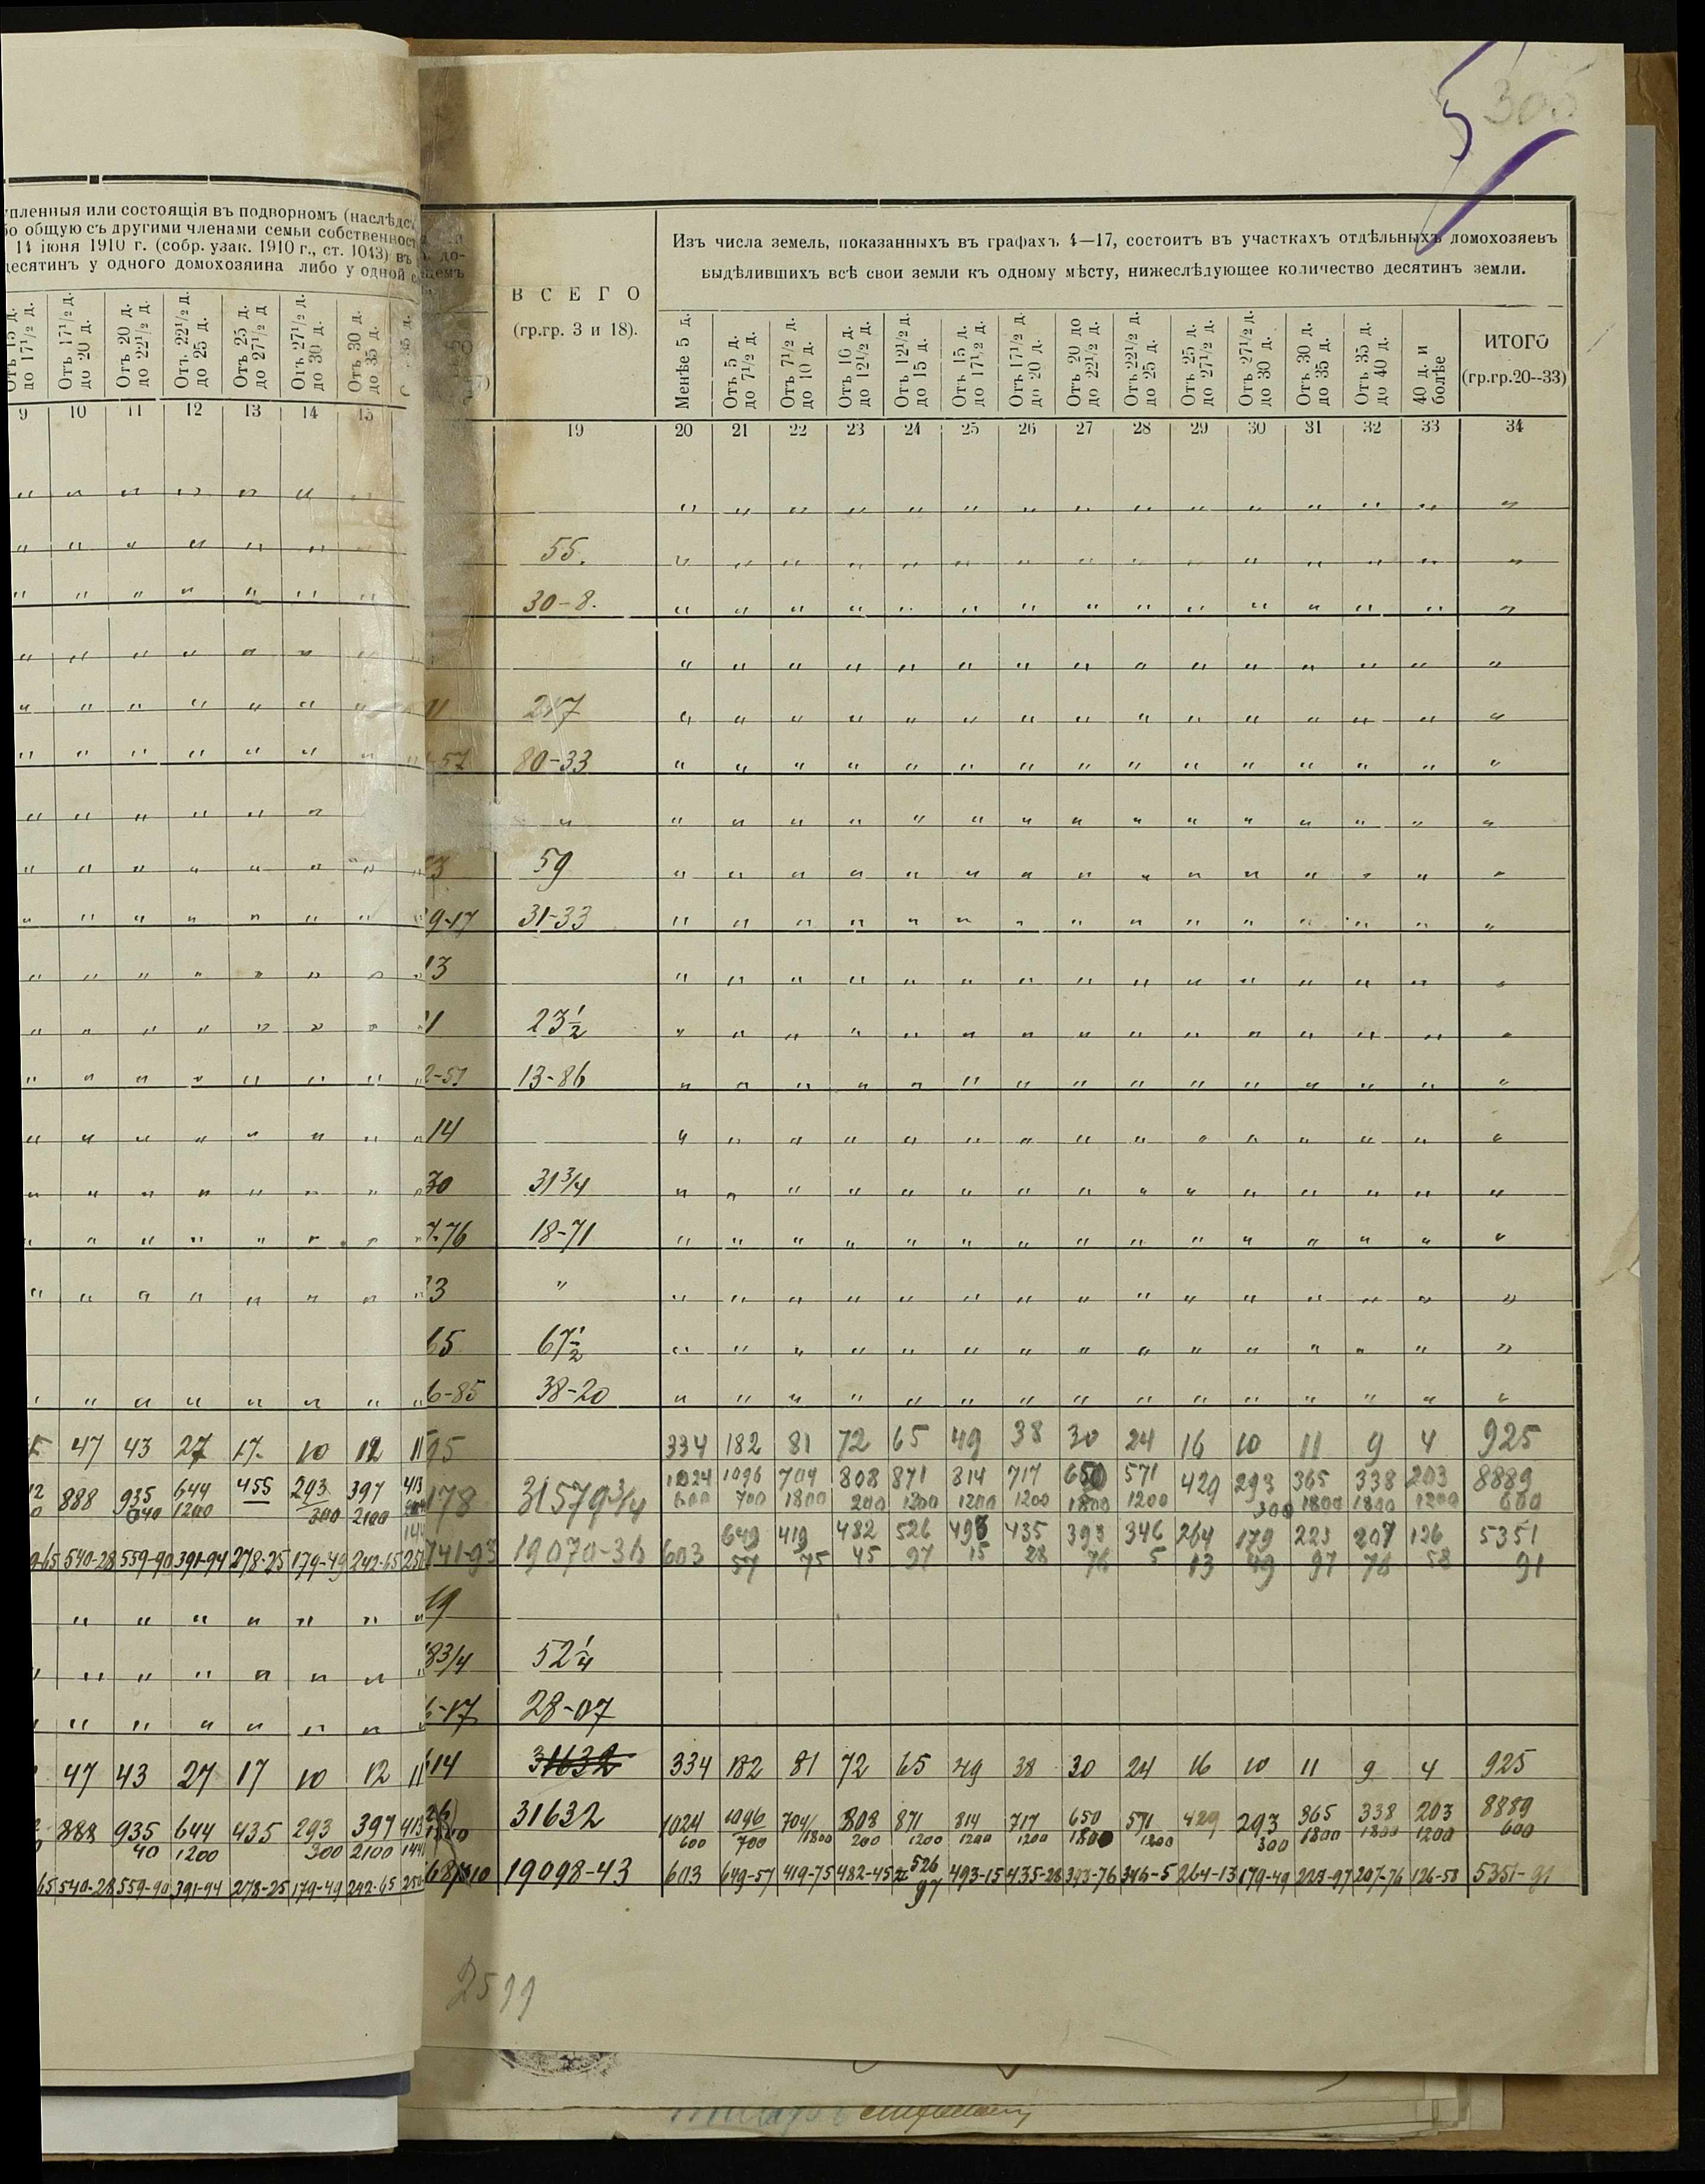 5
упленныя или состоящія въ подворномъ (наслѣдс
бо общую съ другими членами семьи собственност
14 іюня 1910 г. (собр. узак. 1910 г., ст. 1043) въ
десятинъ у одного домохозяина либо у одной с
Отъ 15 д. до 17½ д. Отъ 17½ д. до 20 д. Отъ 20 д. до 22½ д. Отъ 22½ д. до 25 д. Отъ 25 д. до 27½ д Отъ 27½ д. до 30 д. Отъ 30 д. до 35 д.
9 10 11 12 13 14 15
ВСЕГО
(гр.гр. 3 и 18).
Изъ числа земель, показанныхъ въ графахъ 4—17, состоитъ въ участкахъ отдѣльныхъ домохозяевъ
выдѣлившихъ всѣ свои земли къ одному мѣсту, нижеслѣдующее количество десятинъ земли.
Менѣе 5 д. Отъ 5 д. до 7½ д. Отъ 7½ д. до 10 д. Отъ 10 д. до 12½ д. Отъ 12½ д. до 15 д. Отъ 15 д. до 17½ д. Отъ 17½ д. до 20 д. Отъ 20 до до 22½ д. Отъ 22½ д. до 25 д. Отъ 25 д. до 27½ д. Отъ 27½ д. до 30 д. Отъ 30 д. до 35 д. Отъ 35 д. до 40 д. 40 д. и болѣе
ИТОГО
(гр.гр.20--33)
19 20 21 22 23 24 25 26 27 28 29 30 31 32 33 34
" " " " " " " " " " " " " " "
55. " " " " " " " " " " " " " " "
30-8. " " " " " " " " " " " " " " "
" " " " " " " " " " " " " " "
217 " " " " " " " " " " " " " " "
57 80-33 " " " " " " " " " " " " " " "
" " " " " " " " " " " " " " " "
59 " " " " " " " " " " " " " " "
9-17 31-33 " " " " " " " " " " " " " " "
13 " " " " " " " " " " " " " " "
23½ " " " " " " " " " " " " " " "
2-51 13-86 " " " " " " " " " " " " " " "
14 " " " " " " " " " " " " " " "
30 31¾ " " " " " " " " " " " " " " "
7-76 18-71 " " " " " " " " " " " " " " "
3 " " " " " " " " " " " " " " " "
65 67½ " " " " " " " " " " " " " " "
6-85 38-20 " " " " " " " " " " " " " " "
47 43 27 17 10 12 11 95 334 182 81 72 65 49 38 30 24 16 10 11 9 4 925
888 935 644 455 293 397 413 178 31579¾ 1024 1096 704 808 871 814 717 650 571 429 293 365 338 203 8889
040 1200 300 2100 600 700 1800 200 1200 1200 1200 1800 1200 300 1800 1800 1200 600
649 419 482 526 493 435 393 346 264 179 223 207 126 5351
65 540-28 559-90 391-94 278-25 179-49 242-65 741-93 19070-36 603 57 75 45 97 15 28 76 5 13 49 97 76 58 91
19
83/4 52¼
6-17 28-07
47 43 27 17 10 12 11 614 31632 334 182 81 72 65 49 38 30 24 16 10 11 9 4 925
888 935 644 435 293 397 413 31632 1024 1096 704 808 871 814 717 650 571 429 293 365 338 203 8889
40 1200 300 2100 600 700 1800 200 1200 1200 1200 1800 1200 300 1800 1800 1200 600
65 540-28 559-90 391-94 278-25 179-49 242-65 19098-43 603 649-57 419-75 482-45 526 97 493-15 435-28 393-76 346-5 264-13 179-49 223-97 207-76 126-58 5351-91